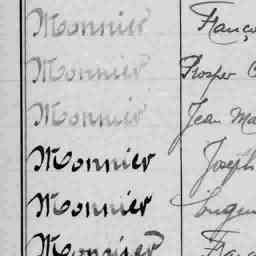 Monnier Franço
Monnier Prosper
Monnier Jean Ma
Monnier Joseph
Monnier Eugen
Monnier Franç